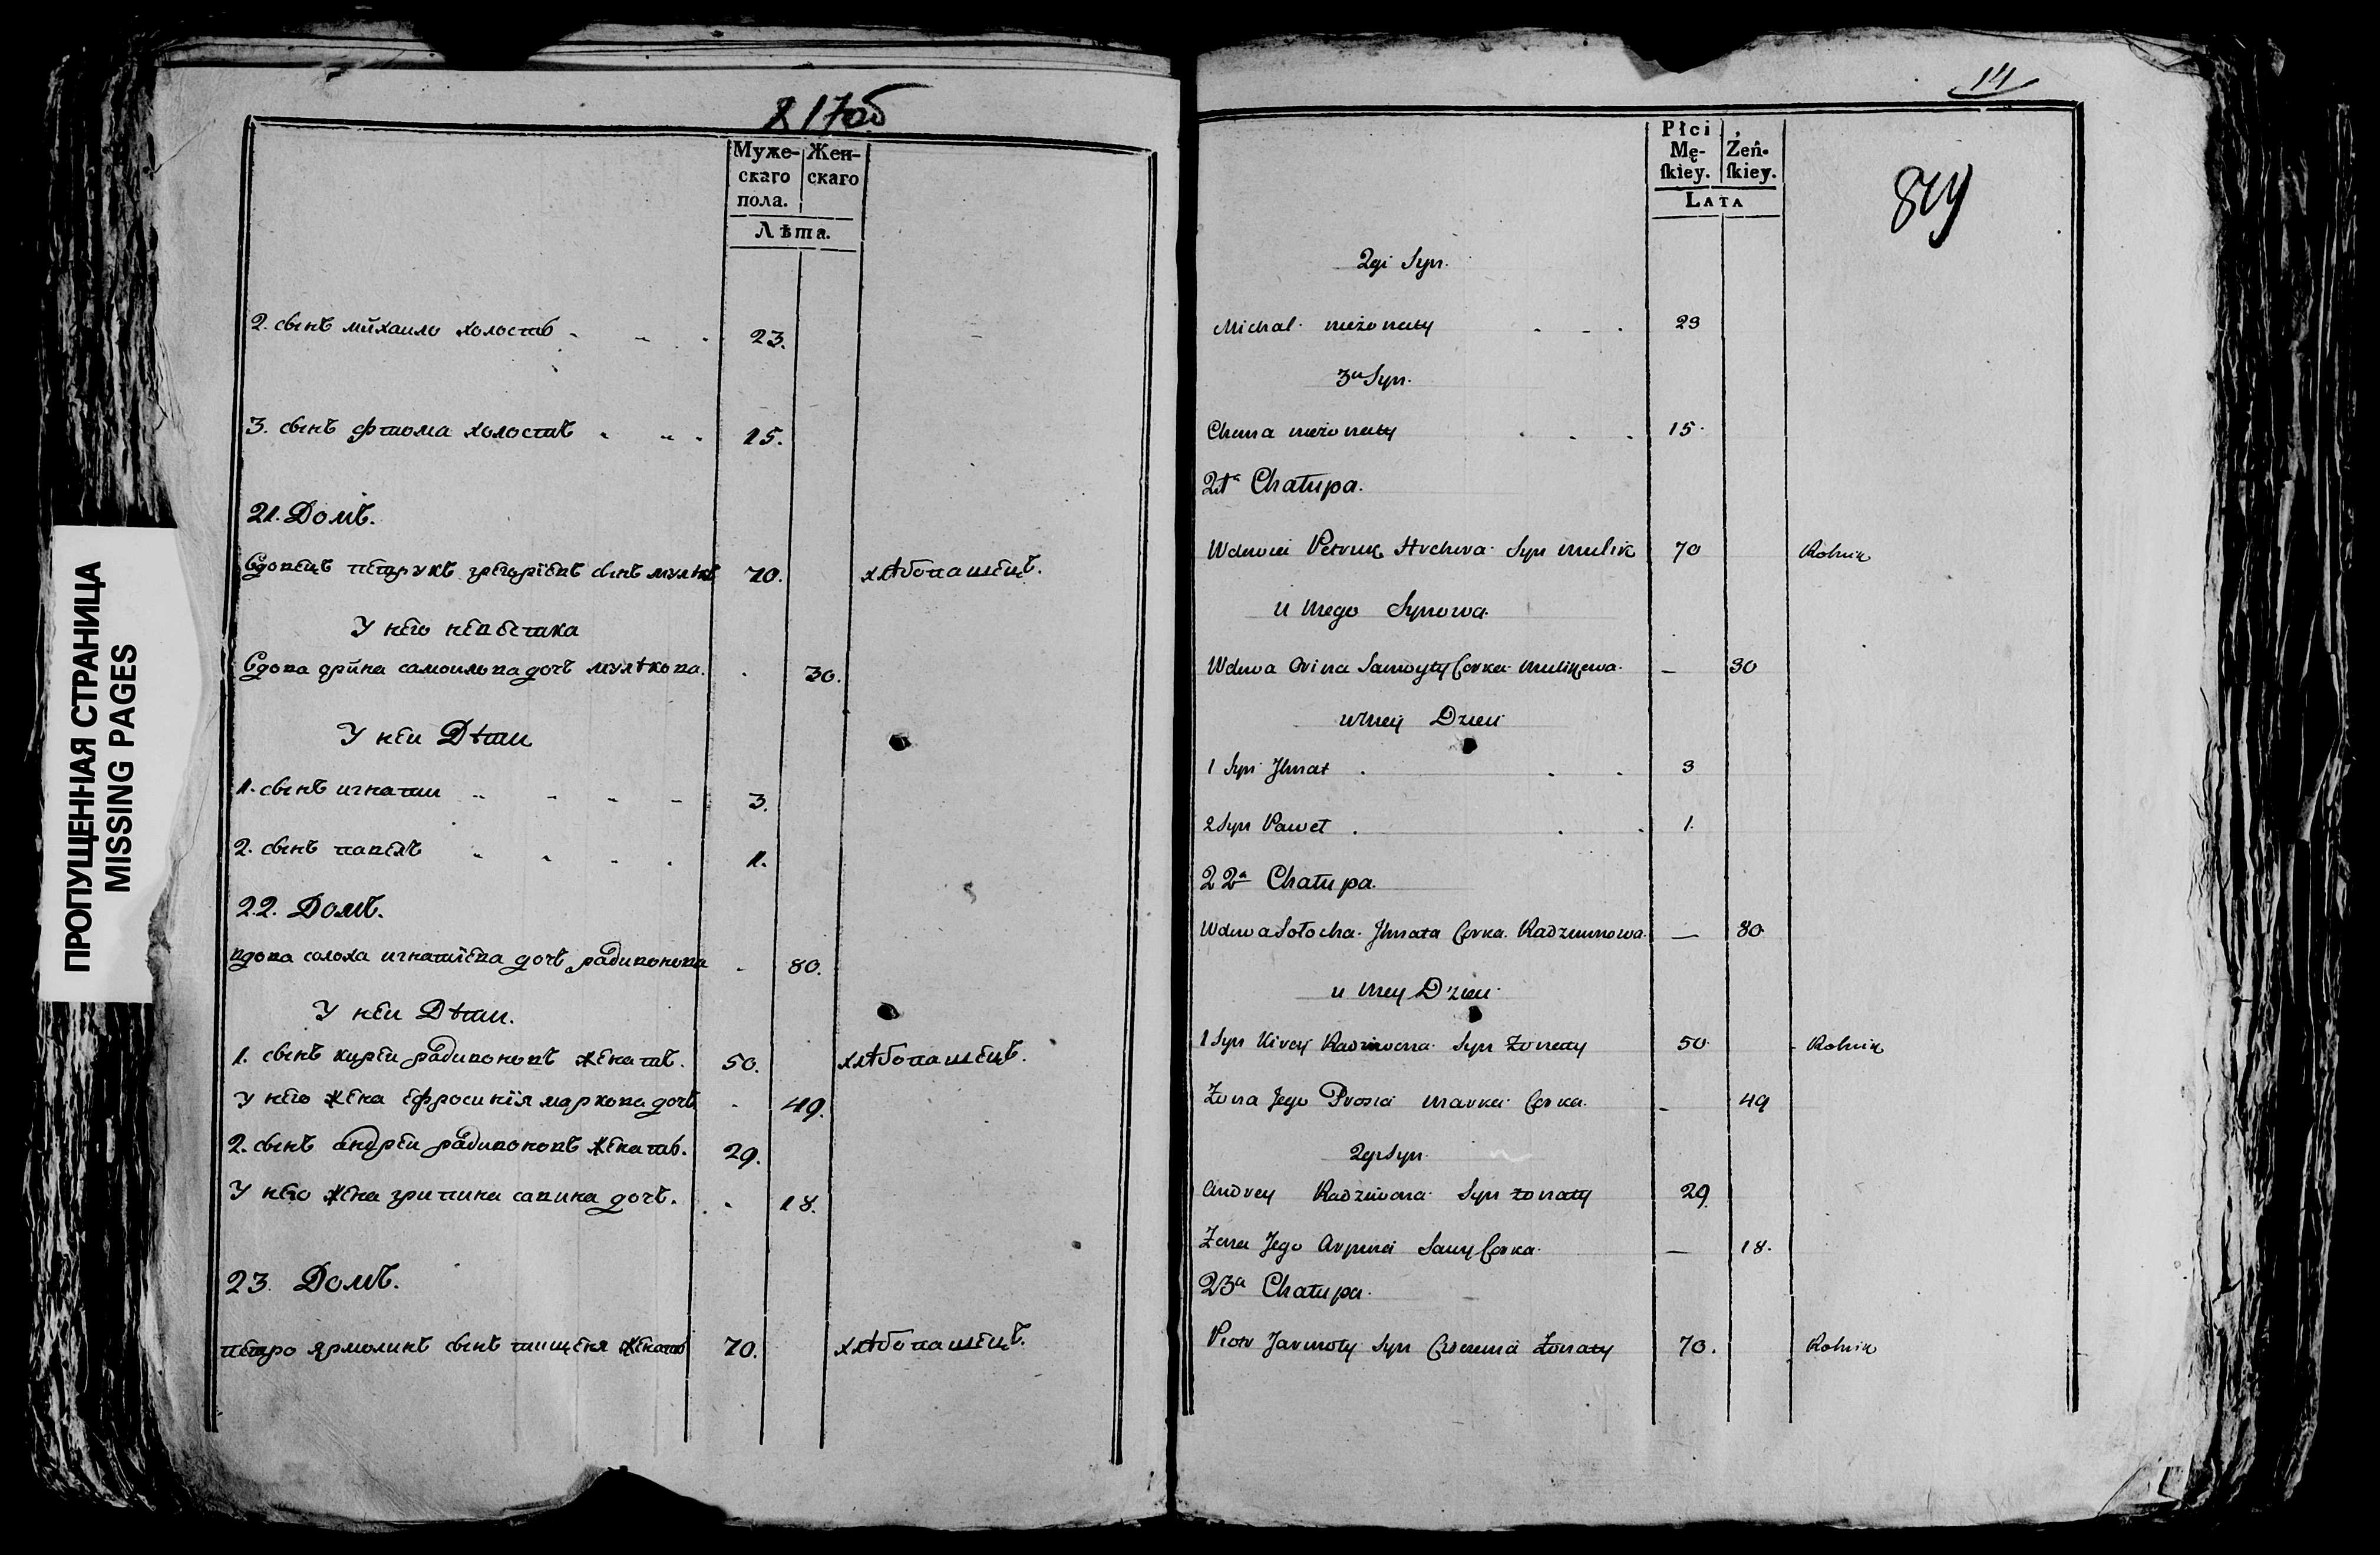 ПРОПУЩЕННАЯ СТРАНИЦА
MISSING PAGES
Муже- Жен-
скаго скаго
пола.
Лѣта.
2. сынъ михаило холостъ 23.
3. сынъ фтома холостъ 15.
21. Домъ.
Вдовецъ петрукъ грегоріевъ сынъ 70. хлѣбопашецъ.
У него невѣстка
Вдова орина самоилова дочь мулѣкова. 30.
У неи Дѣти
1. сынъ игнатии 3.
2. сынъ павелъ 1.
22. Домъ.
вдова солоха игнатіева дочь радивонова 80.
У неи Дѣти.
1. сынъ кирѣи радивоновъ женатъ. 50. хлѣбопашецъ.
У него жена ефросинія маркова дочь 49.
2. сынъ андреи радивоновъ женатъ. 29.
У него жена грипина савина дочь. 18.
23. Домъ.
петро ярмолинъ сынъ женатъ 70. хлѣбопашецъ.
14
Płci
Mę- Żeń-
ſkiey. ſkiey.
LATA
2gi Syn.
Michał nieżonaty 23
3ci Syn.
Choma nieżonaty 15
21a Chałupa.
Wdowiec Petruk Syn Mulik 70 Rolnik
u niego Synowa
Wdowa Orina Samoyły Corka Mulikowa 30
u niey Dzieci
1 Syn Jhnat 3
2 Syn Paweł 1.
22a Chałupa.
Wdowa Sołocha Jhnata Corka Radziwonowa 80
u niey Dzieci
1 Syn Kirey Radziwona Syn Żonaty 50 Rolnik
Żona Jego Prosia Marka Corka 49
2gi Syn
Andrey Radziwona Syn żonaty 29
Żona Jego Arpina Sawy Corka 18.
23a Chałupa.
Piotr Jarmoły Syn Żonaty 70. Rolnik